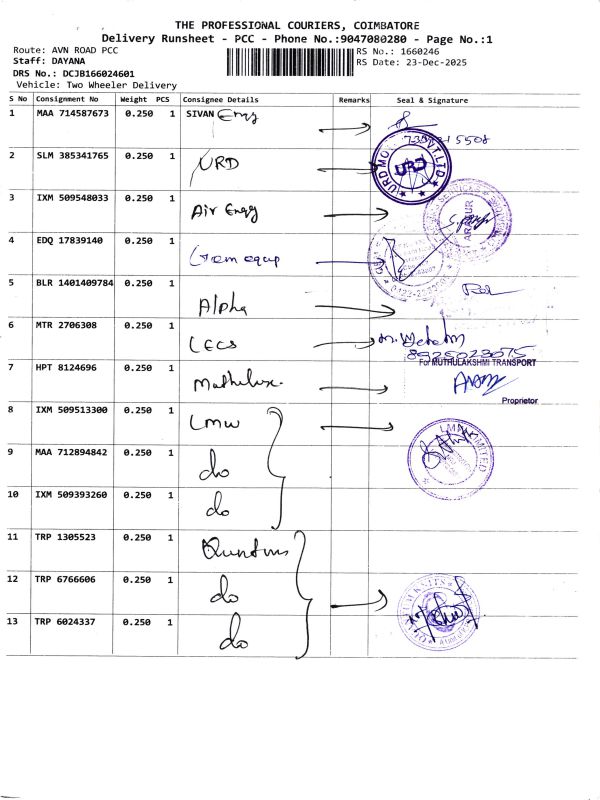 THE PROFESSIONAL COURIERS, COIMBATORE
Delivery Runsheet - PCC - Phone No.:9047080280 - Page No.:1
Route: AVN ROAD PCC
RS No.: 1660246
Staff: DAYANA
RS Date: 23-Dec-2025
DRS No.: DCJB166024601
Vehicle: Two Wheeler Delivery
S No Consignment No Weight PCS Consignee Details Remarks Seal & Signature
1 MAA 714587673 0.250 1 SIVAN Engg
2 SLM 385341765 0.250 1 URD
URD
3 IXM 509548033 0.250 1 Air Engg
4 EDQ 17839140 0.250 1 Gem equip
5 BLR 1401409784 0.250 1 Alpha
6 MTR 2706308 0.250 1 LECS
8925023075
For MUTHULAKSHMI TRANSPORT
7 HPT 8124696 0.250 1
Proprietor
8 IXM 509513300 0.250 1 LMW
9 MAA 712894842 0.250 1 do
10 IXM 509393260 0.250 1 do
11 TRP 1305523 0.250 1
12 TRP 6766606 0.250 1 do
13 TRP 6024337 0.250 1 do